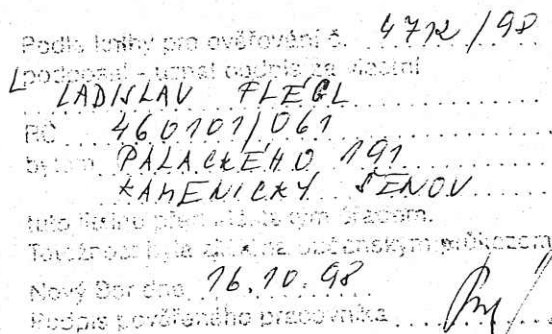 Podle knihy pro ověřování č. 4712/98
podepsal - uznal podpis za vlastní
LADISLAV FLÉGL
RČ 460101/061
bytem PALACKÉHO 191
KAMENICKÝ ŠENOV
tuto listinu před
Totožnost byla občanským průkazem
Nový Bor dne 16.10.98
Podpis pověřeného pracovníka